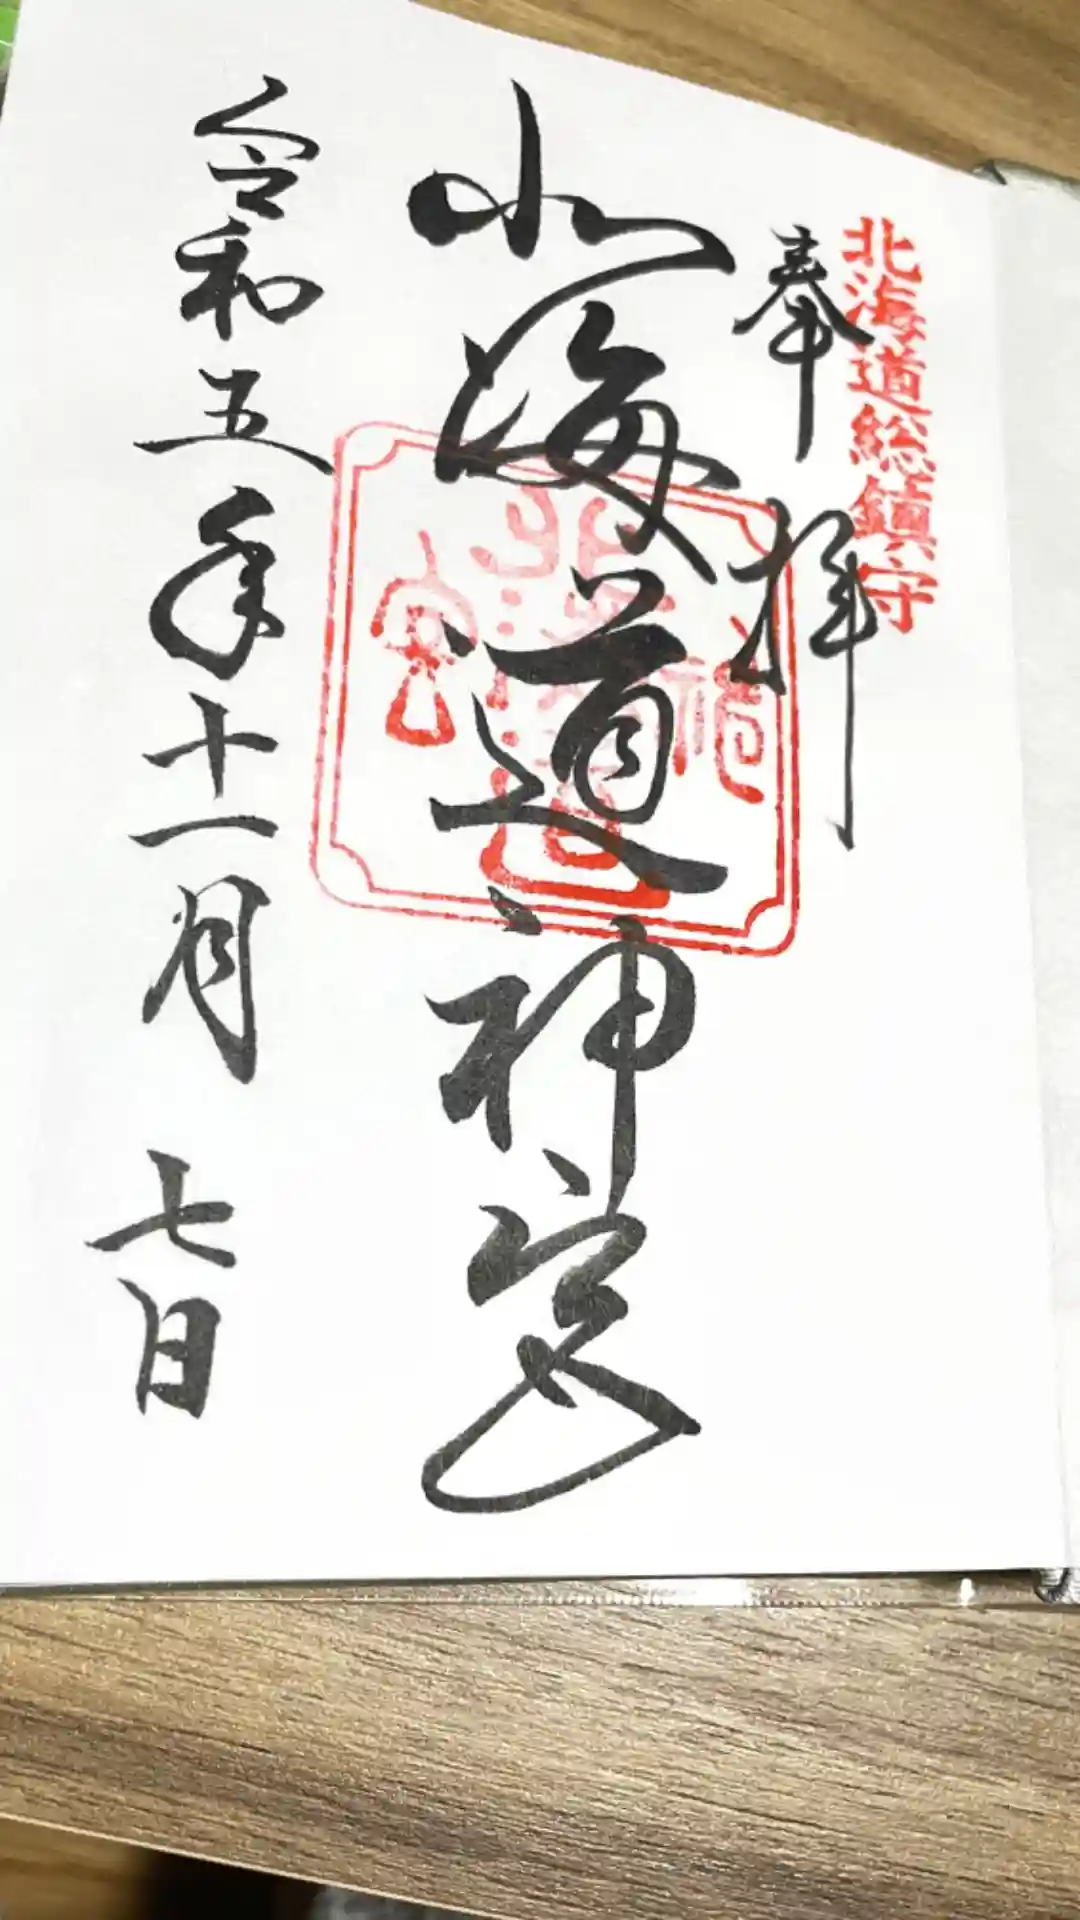 北海道総鎮守
奉拝
北海道神宮
令和五年十一月七日